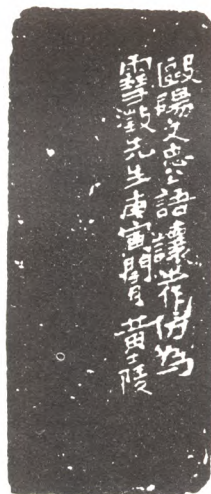 歐陽文忠公語讓作為
雪澂先生庚寅閏月黃士陵